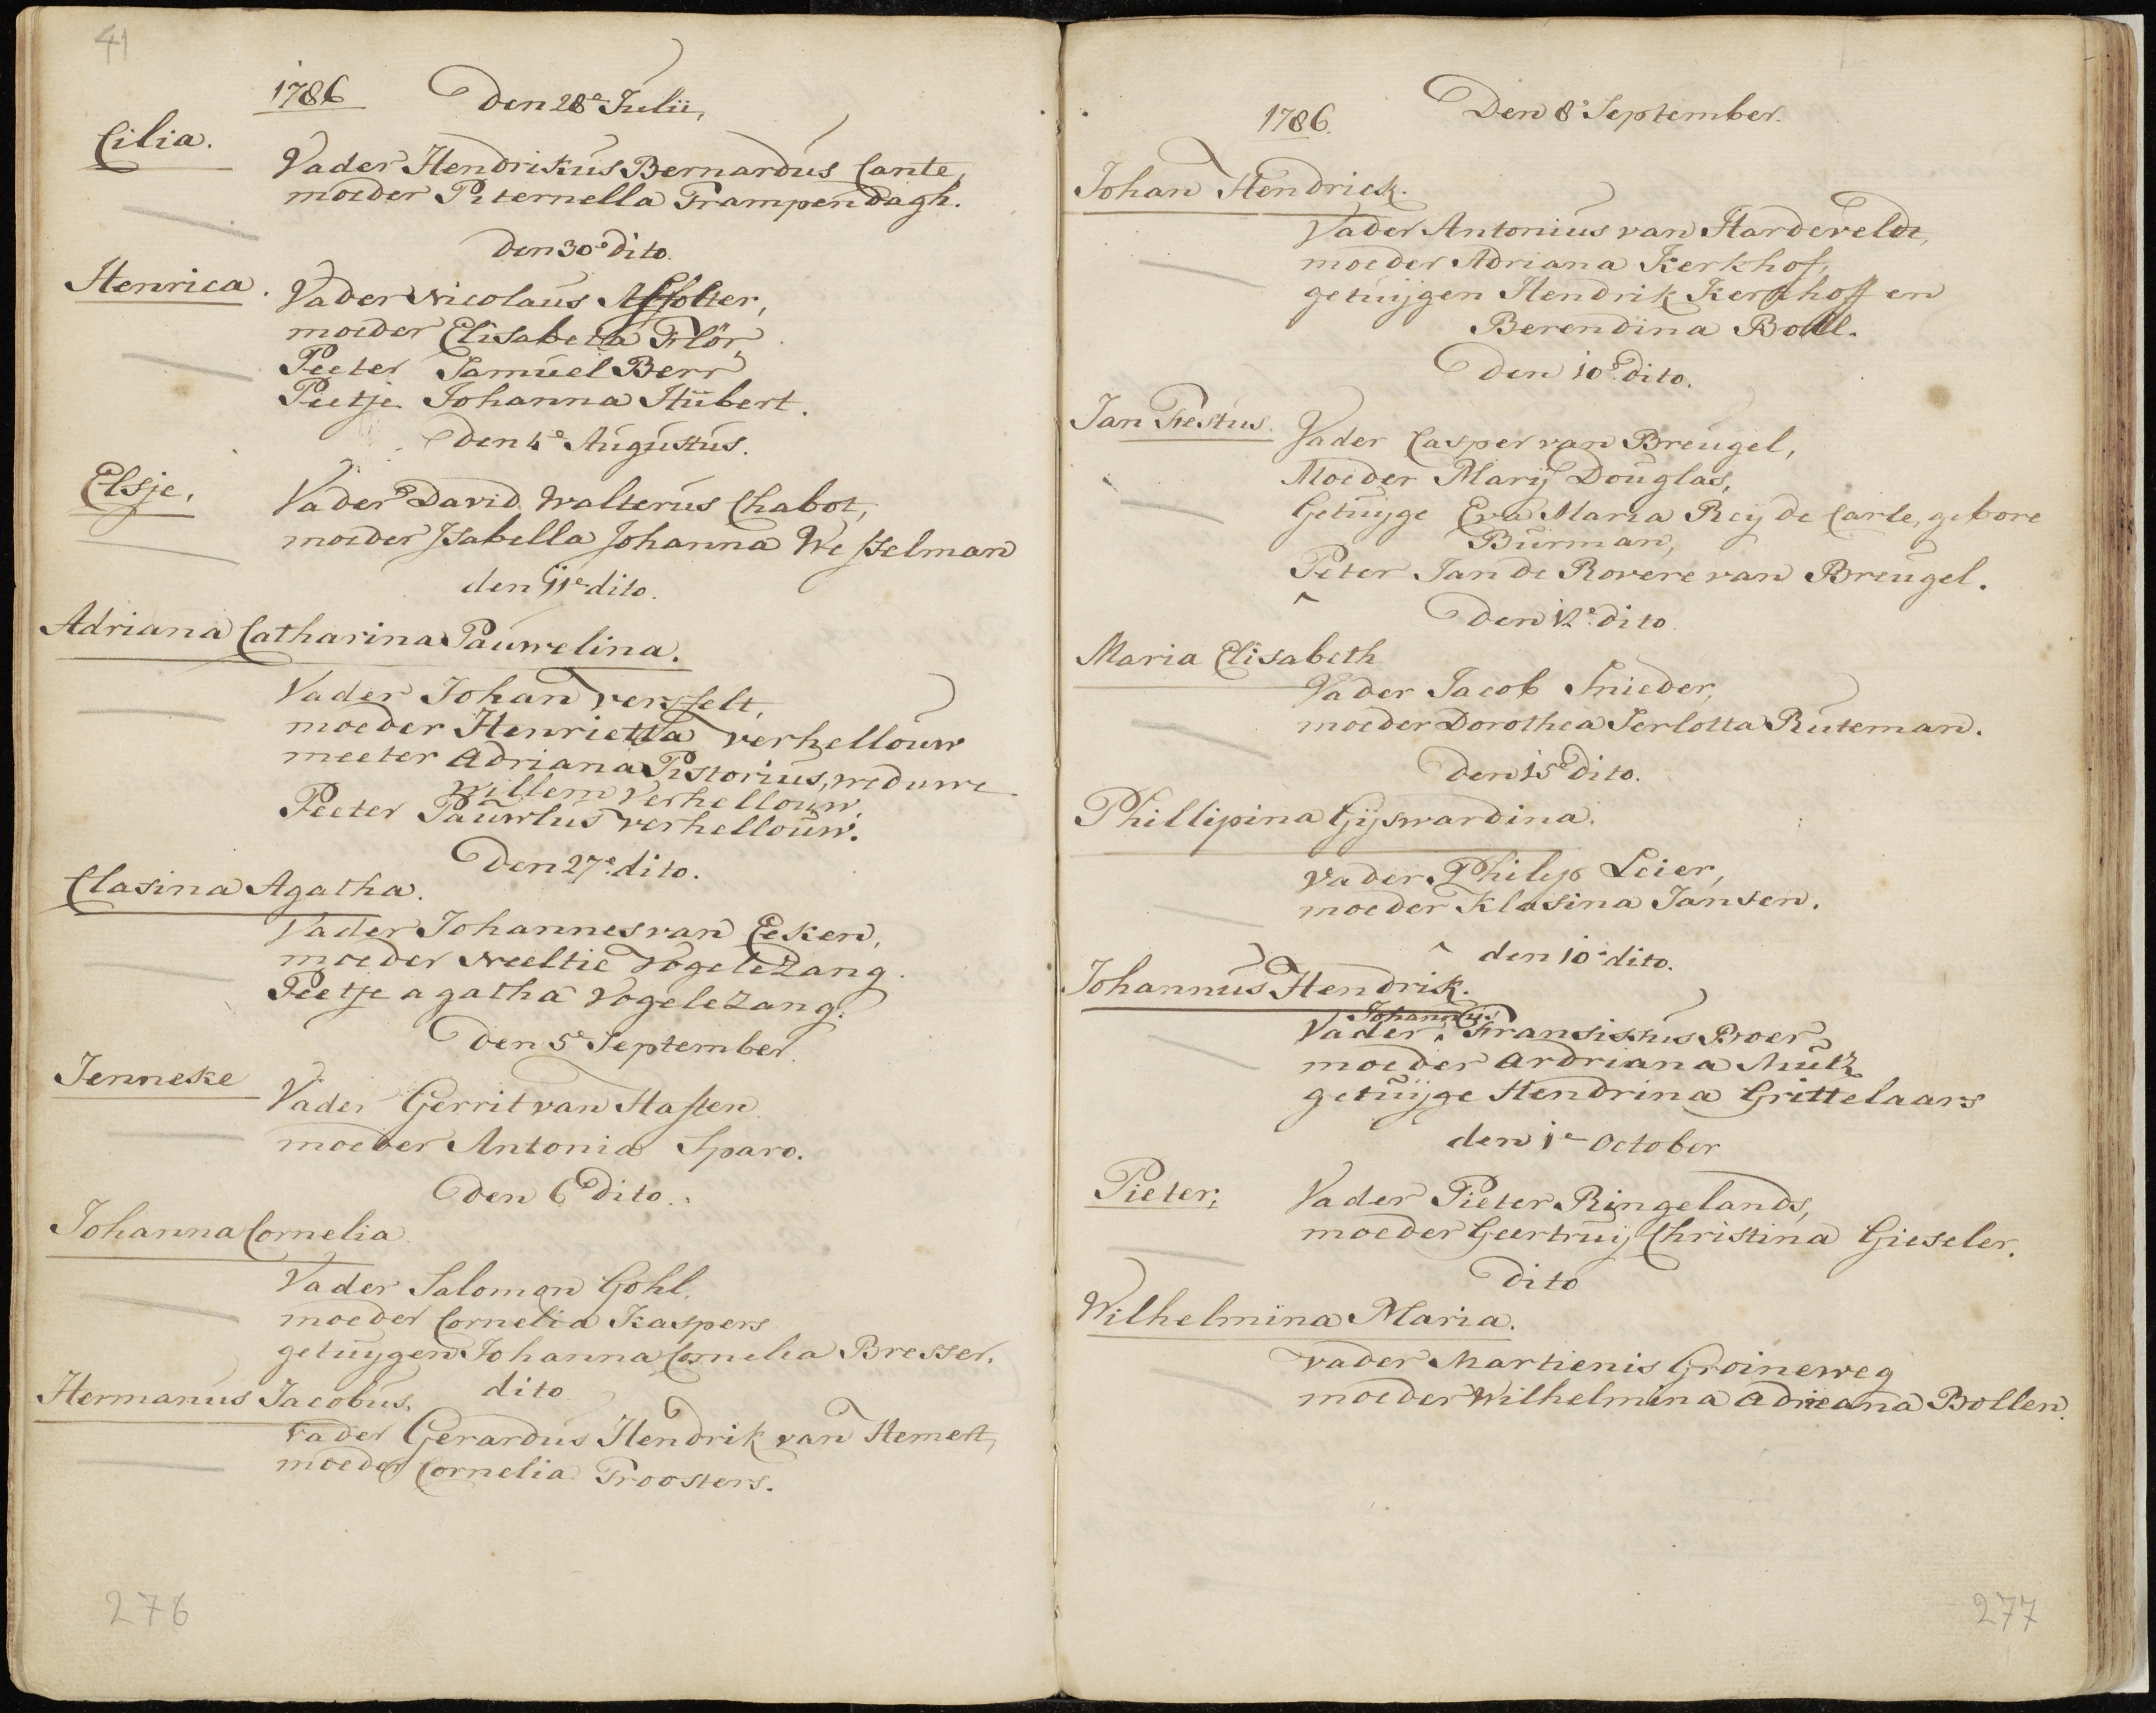 41
1786 Den 28e Julii,
Cilia.
Vader Hendrikus Bernardus Cante,
moeder Piternella Trampendagh.
den 30e dito.
Henrica. Vader Nicolaus Affolter,
moeder Elisabeta Flör,
Peeter Samuel Berr
Peetje Johanna Hübert.
Den 4e Augustus.
Elsje, Vader David Walterus Chabot,
moeder Isabella Johanna Wesselman
den 11e dito.
Adriana Catharina Pauwelina.
Vader Johan versselt,
moeder Henrietta verhellouw
meeter Adriana Pistorius, weduwe
willem Verhellouw,
Peeter Pauwlus verhellouw.
Den 27e dito.
Clasina Agatha.
Vader Johannes van Eeken,
moeder Neeltie Vogelezang.
Peetje agatha Vogelezang.
Den 5e September.
Jenneke Vader Gerrit van Hasten
moeder Antonia Sparo.
Den 6e dito.
Johanna Cornelia.
Vader Salomon Gohl,
moeder Cornelia Kaspers
getuygen Johanna Cornelia Bresser.
dito
Hermanus Jacobus.
vader Gerardus Hendrik van Hemert,
moeder Cornelia Troosters.
276
1786. Den 8e September.
Johan Hendrick.
Vader Antonius van Hardeveldt,
moeder Adriana Kerkhof,
getuijgen Hendrik Kerkhoff en
Berendina Boll.
Den 10e dito.
Jan Festus. Vader Casper van Breugel,
Moeder Marij Douglas,
Getuijge Eva Maria Reij de Carle, gebore
Burman,
Peter Jan de Rovere van Breugel.
Den 12e dito
Maria Elisabeth
Vader Jacob Snieder,
moeder Dorothea Serlotta Ruteman.
Den 15e dito.
Phillipina Gijswardina.
Vader Philip Leier,
moeder Klasina Jansen.
^ den 10e dito.
Johannus Hendrik.
Johannus
Vader ^ Fransiskus Boer
moeder ardriana Mulz
getuijge Hendrina Grittelaars
den 1e October
Pieter; Vader Pieter Ringelands,
moeder Geertruij Christina Gieseler.
dito
Wilhelmina Maria.
vader Martienis Groineweg
moeder Wilhelmina adrieana Bollen.
277